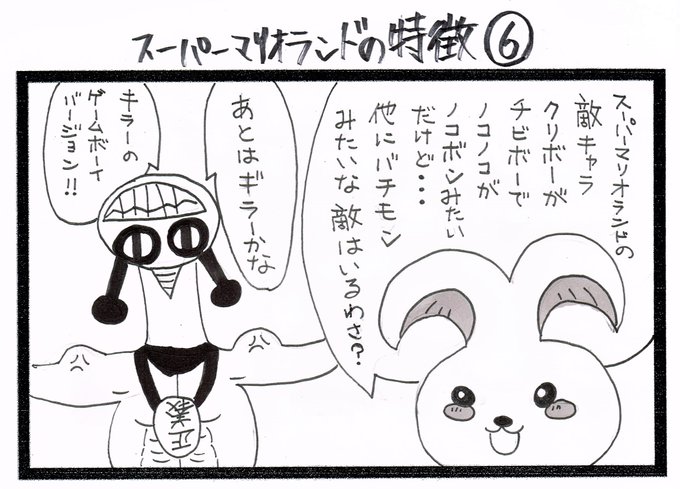 スーパーマリオランドの特徴⑥
スーパーマリオランドの
敵キャラ
クリボーが
チビボーで
ノコノコが
ノコボンみたい
だけど・・・
他にバチモン
みたいな敵はいるわさ？
あとはギラーかな
キラーの
ゲームボーイ
バージョン!!